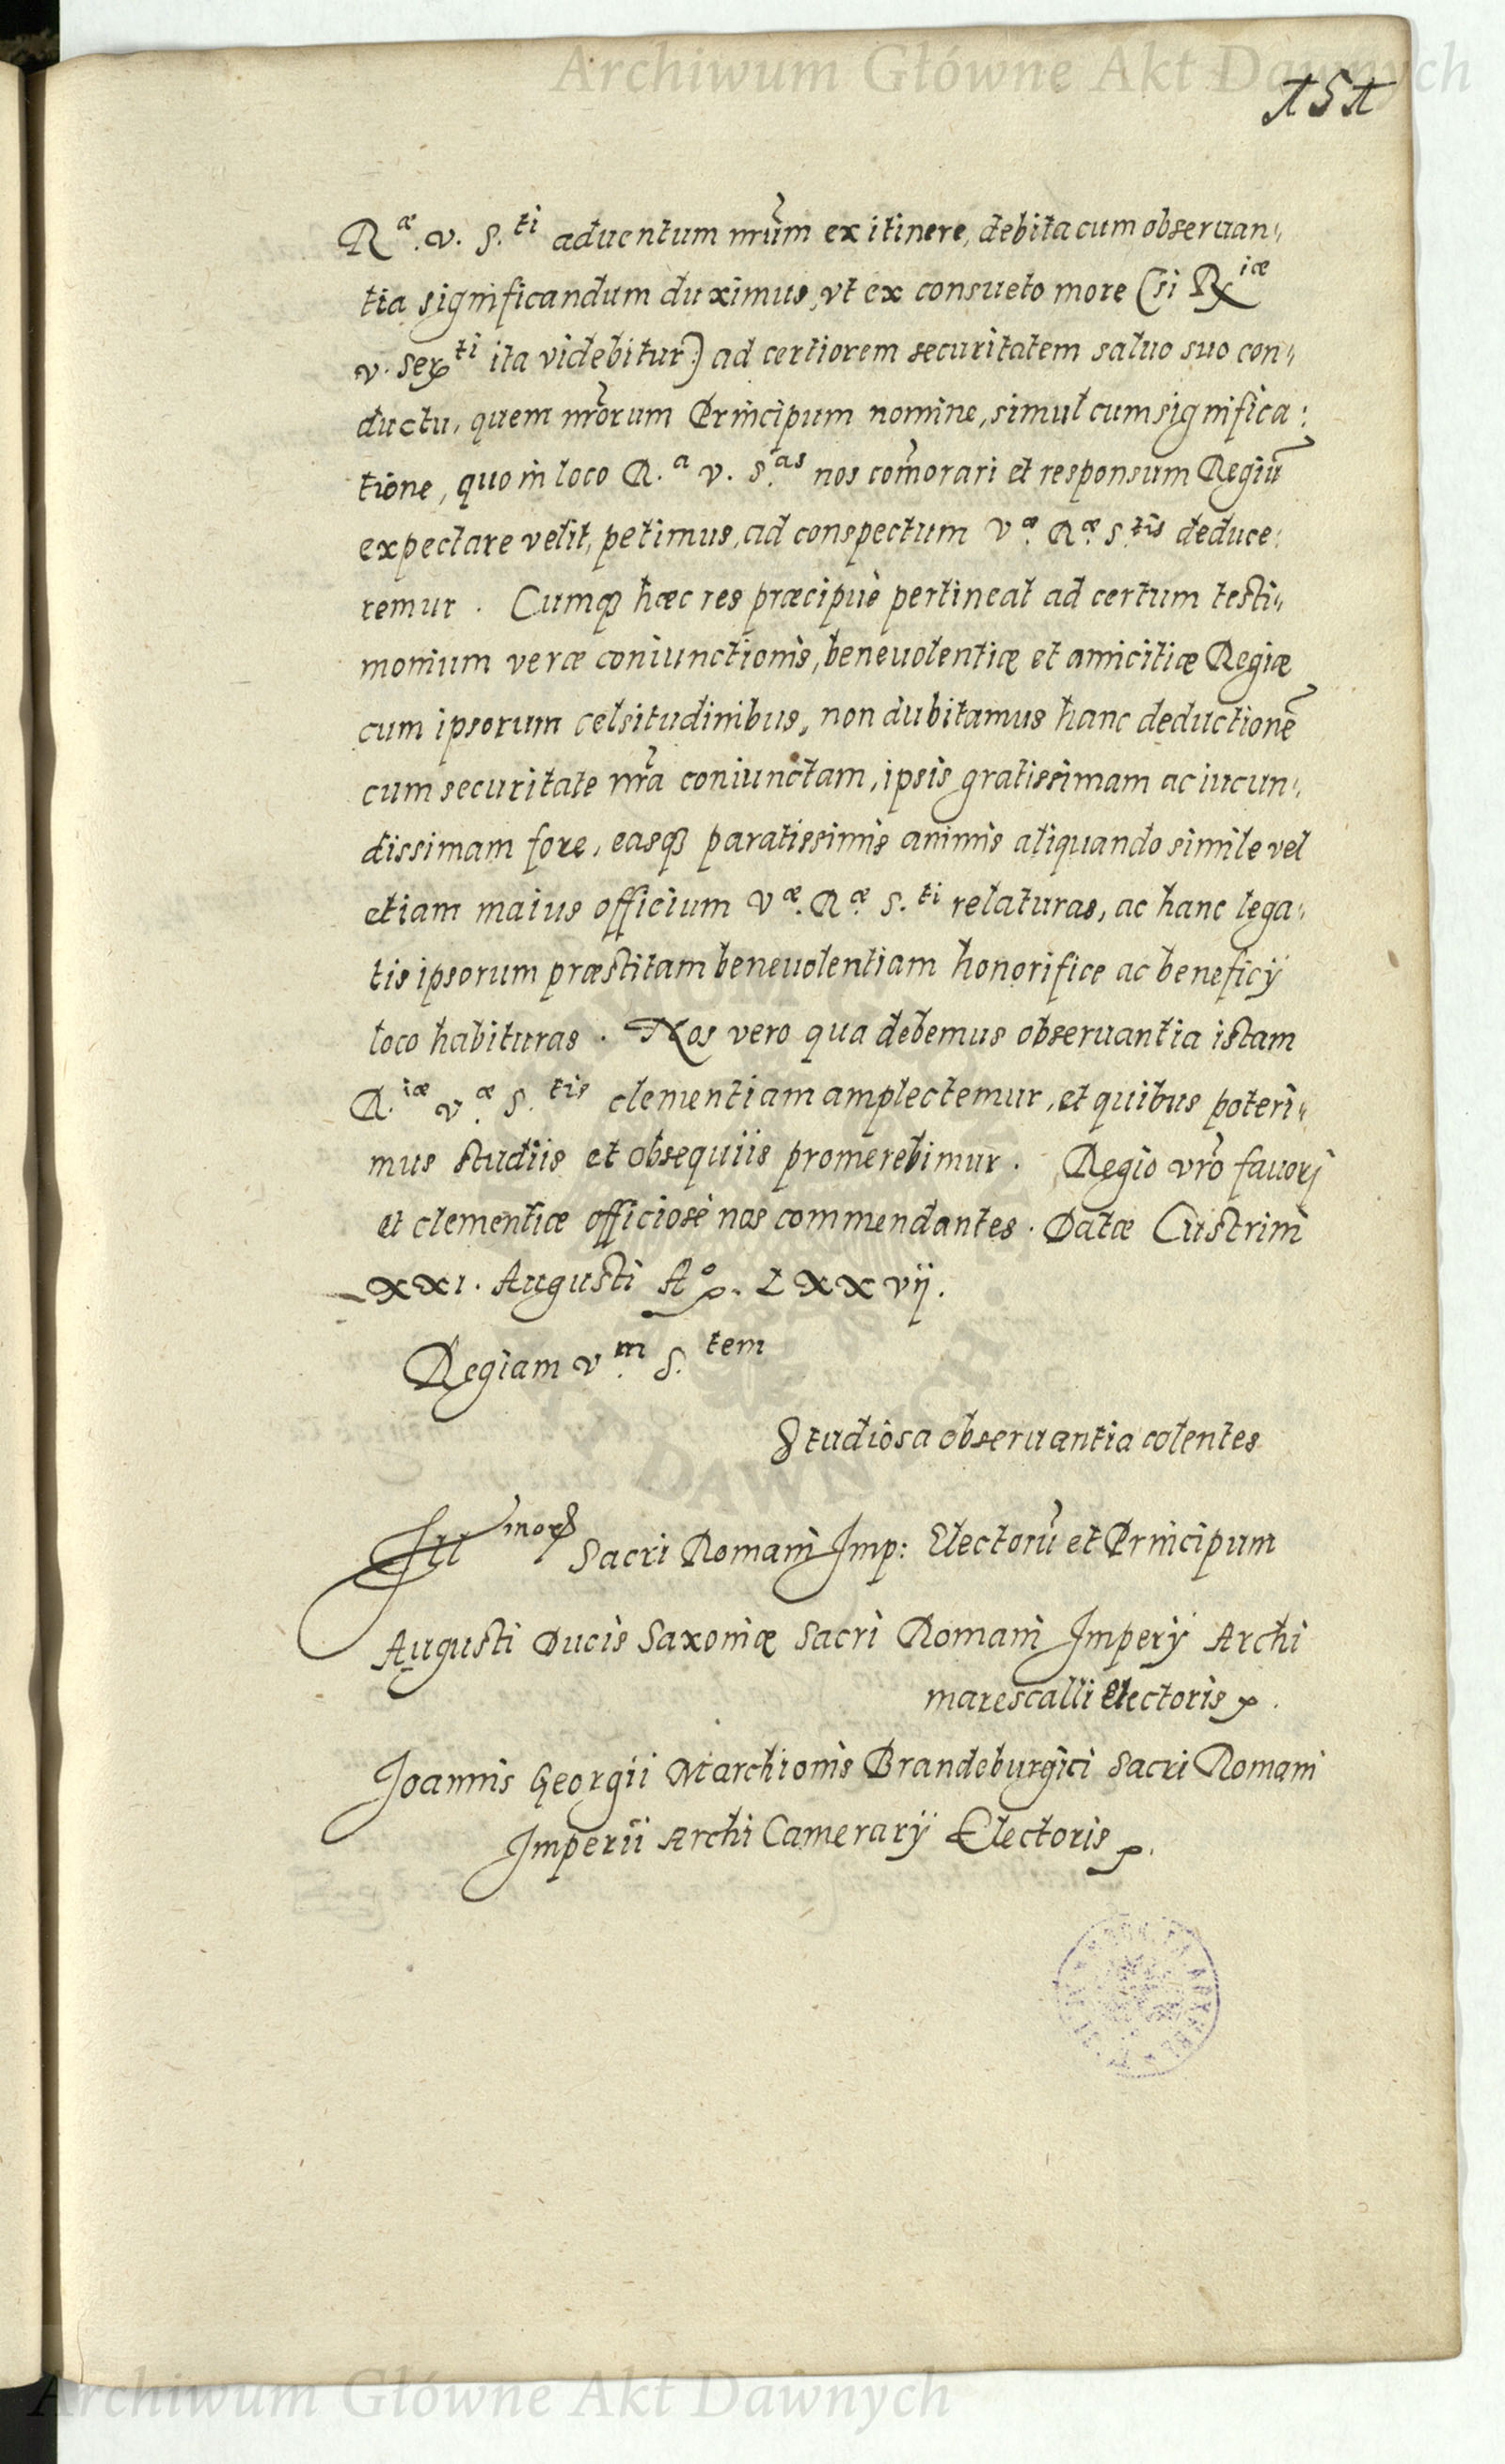 Archiwum Główne Akt Dawnych
151
R.æ v. S.ti aduentum nr̃um ex itinere, debita cum obseruan„
tia significandum duximus, vt ex consueto more (si Rxiæ
v. Serti ita videbitur) ad certiorem securitatem saluo suo con„
ductu, quem nr̃orum Principum nomine, simul cum significa:
tione, quo in loco R.a v. S.as nos com̃orari et responsum Regiũ
expectare velit, petimus, ad conspectum V.æ R.æ S.tis deduce:
remur. Cumq3 hæc res præcipuè pertineat ad certum testi„
monium veræ coniunctionis, beneuolentiæ et amicitiæ Regiæ
cum ipsorum celsitudinibus, non dubitamus hanc deductionẽ
cum securitate nr̃a coniunctam, ipsis gratissimam ac iucun„
dissimam fore, easq3 paratissimis animis aliquando simile vel
etiam maius officium V.æ R.æ S.ti relaturas, ac hanc lega„
tis ipsorum præstitam beneuolentiam honorifice ac beneficij
loco habituras. Nos vero qua debemus obseruantia istam
R.iæ v.æ S.tis clementiam amplectemur, et quibus poteri„
mus studiis et obsequiis promerebimur. Regio vr̃o fauori
et clementiæ officiosè nos commendantes. Datæ Custrini
XXI. Augusti Ao. LXXvij.
Regiam v.m S.tem
Studiosa obseruantia colentes
Illmor Sacri Romani Imp: Electorũ et Principum
Augusti Ducis Saxoniæ Sacri Romani Imperij Archi
marescalli Electoris
Joannis Georgii Marchionis Brandeburgici Sacri Romani
Imperii Archi Camerarij Electoris
Archiwum Główne Akt Dawnych